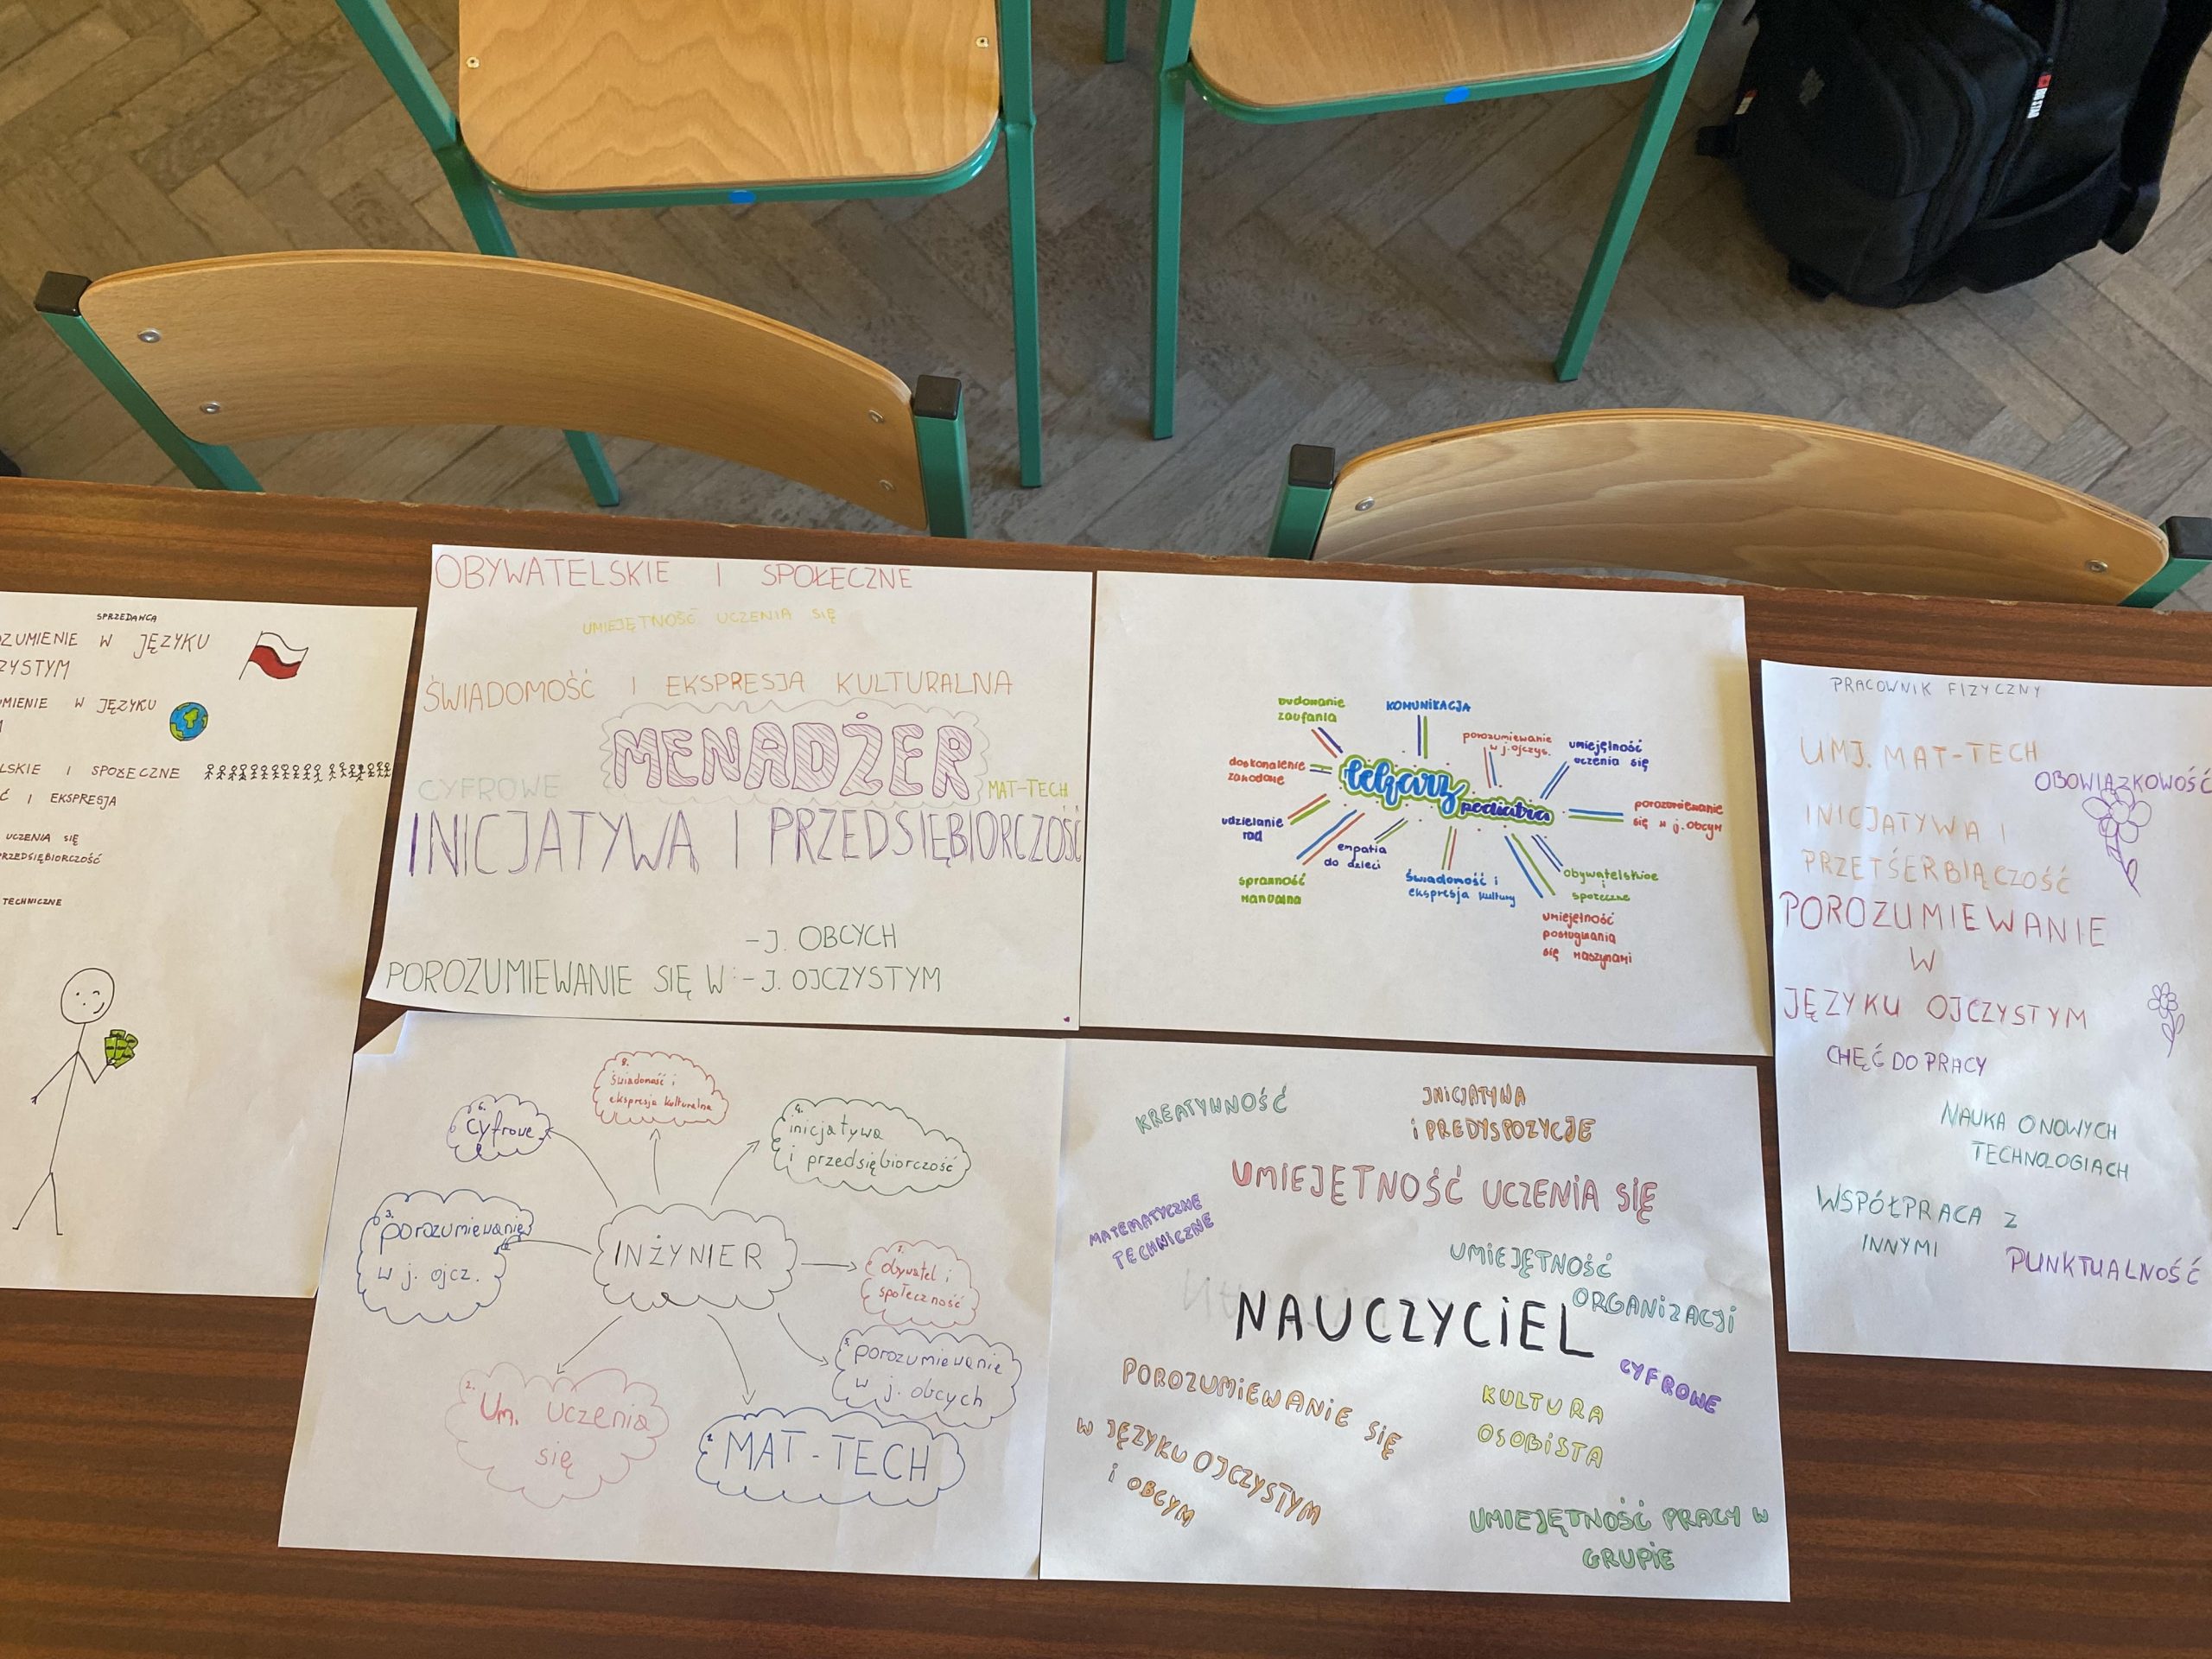 BIG STAR
SPRZEDAWCA
ZUMIENIE W JĘZYKU
ZYSTYM
MIENIE W JĘZYKU
LSKIE I SPOŁECZNE
Ć I EKSPRESJA
UCZENIA SIĘ
RZEDSIĘBIORCZOŚĆ
TECHNICZNE
OBYWATELSKIE I SPOŁECZNE
UMIEJĘTNOŚĆ UCZENIA SIĘ
ŚWIADOMOŚĆ I EKSPRESJA KULTURALNA
MENADŻER
CYFROWE
MAT-TECH
INICJATYWA I PRZEDSIĘBIORCZOŚĆ
-J. OBCYCH
POROZUMIEWANIE SIĘ W:-J. OJCZYSTYM
budowanie
zaufania
KOMUNIKACJA
porozumiewanie
w j. ojczys.
umiejętność
uczenia się
doskonalenie
zawodowe
lekarz
pediatra
porozumiewanie
się w j. obcym
udzielanie
rad
empatia
do dzieci
sprawność
manualna
świadomość i
ekspresja kultury
obywatelskioe
i
społeczne
umiejętność
posługiwania
się maszynami
PRACOWNIK FIZYCZNY
UMJ. MAT-TECH
OBOWIĄZKOWOŚĆ
INICJATYWA I
PRZETŚERBIĄCZOŚĆ
POROZUMIEWANIE
W
JĘZYKU OJCZYSTYM
CHĘĆ DO PRACY
NAUKA O NOWYCH
TECHNOLOGIACH
WSPÓŁPRACA Z
INNYMI
PUNKTUALNOŚĆ
8.
świadomość i
ekspresja kulturalna
6.
Cyfrowe
4.
inicjatywa
i przedsiębiorczość
3.
porozumiewanie
w j. ojcz.
INŻYNIER
7.
obywatel i
społeczność
5.
porozumiewanie
w j. obcych
2.
Um. uczenia
się
1.
MAT-TECH
KREATYWNOŚĆ
INICJATYWA
i PREDYSPOZYCJE
UMIEJĘTNOŚĆ UCZENIA SIĘ
MATEMATYCZNE
TECHNICZNE
UMIEJĘTNOŚĆ
ORGANIZACJI
NAUCZYCIEL
CYFROWE
POROZUMIEWANIE SIĘ
W JĘZYKU OJCZYSTYM
i OBCYM
KULTURA
OSOBISTA
UMIEJĘTNOŚĆ PRACY W
GRUPIE